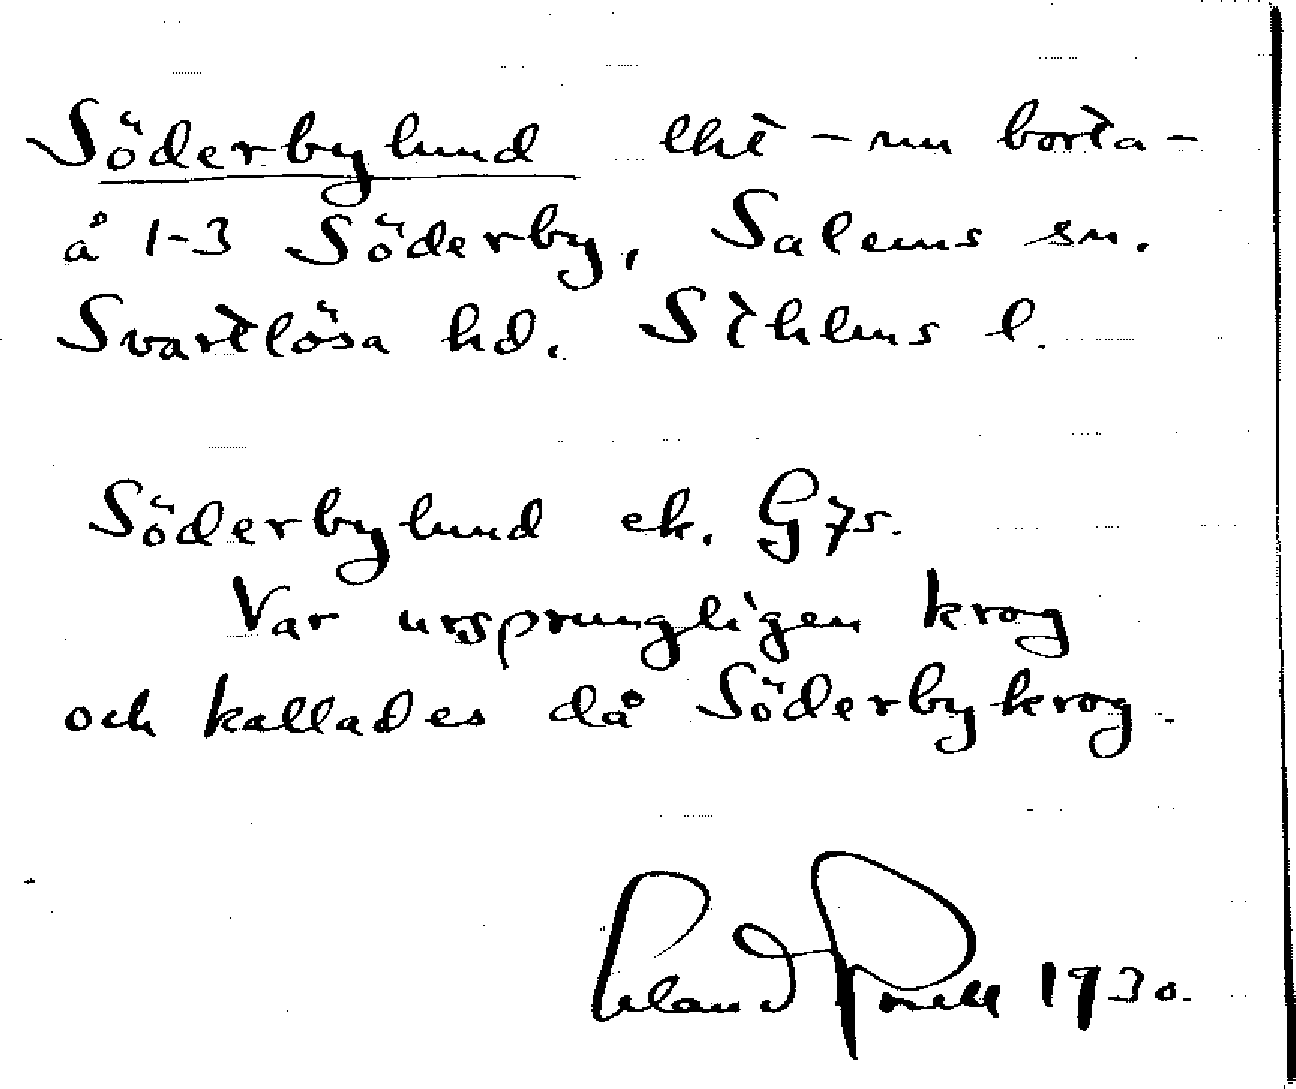 Söderbylund lht - nu borta -
å 1-3 Söderby, Salems sn.
Svartlösa hd. Sthlms l.
Söderbylund ek. G 75.
Var ursprungligen krog
och kallades då Söderbykrog.
Erland Rosell 1930.